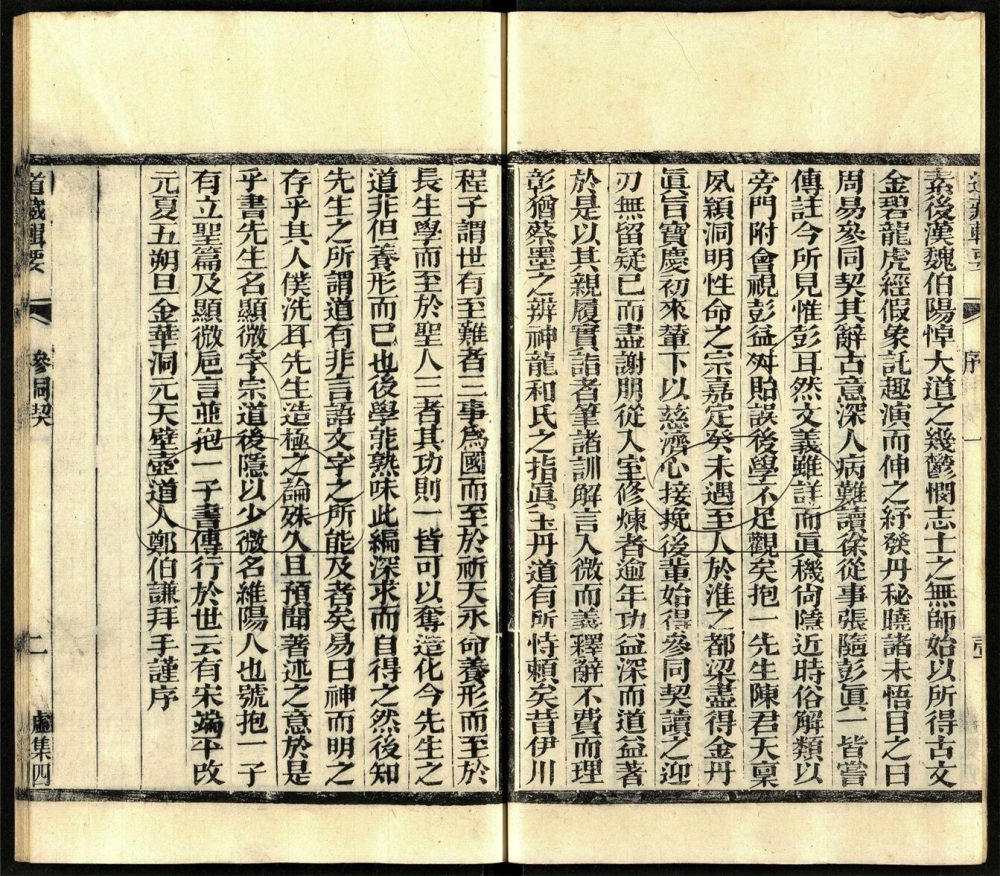 道藏輯要 序 一 壹
素後漢魏伯陽悼大道之幾鬱憫志士之無師始以所得古文
金碧龍虎經假象託趣演而伸之紓發丹秘曉諸未悟目之曰
周易參同契其辭古意深人病難讀徐從事張隨彭眞一皆嘗
傳註今所見惟彭耳然文義雖詳而眞機尙隱近時俗解類以
旁門附會視彭益舛貽誤後學不足觀矣抱一先生陳君天稟
夙穎洞明性命之宗嘉定癸未遇至人於淮之都梁盡得金丹
眞旨寶慶初來輦下以慈濟心接挽後輩始得參同契讀之迎
刃無留疑已而盡謝朋從入室修煉者逾年功益深而道益著
於是以其親履實詣者筆諸訓解言入微而義釋辭不費而理
彰猶蔡墨之辨神龍和氏之指眞玉丹道有所恃賴矣昔伊川
程子謂世有至難者三事爲國而至於祈天永命養形而至於
長生學而至於聖人三者其功則一皆可以奪造化今先生之
道非但養形而已也後學能熟味此編深求而自得之然後知
先生之所謂道有非言語文字之所能及者矣易曰神而明之
存乎其人僕洗耳先生造極之論殊久且預聞著述之意於是
乎書先生名顯微字宗道後隱以少微名維陽人也號抱一子
有立聖篇及顯微巵言並抱一子書傳行於世云有宋端平改
元夏五朔旦金華洞元天壁壺道人鄭伯謙拜手謹序
道藏輯要 參同契 二 虛集四